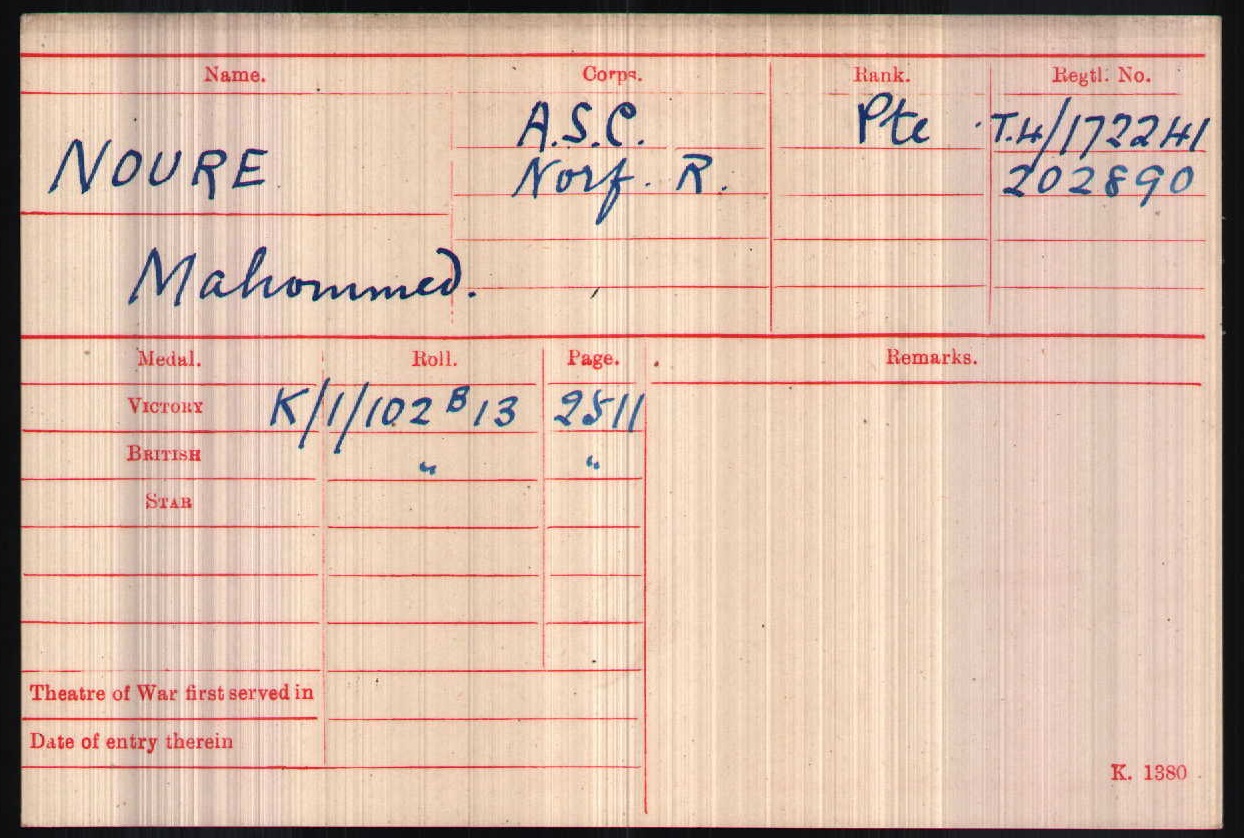 Name. Corps. Rank. Regtl. No.
NOURE A.S.C. Pte T.4/172241
Norf. R. 202890
Mahommed.
Medal. Roll. Page. Remarks.
VICTORY K/1/102 B 13 2511
BRITISH " "
STAR
Theatre of War first served in
Date of entry therein
K. 1380